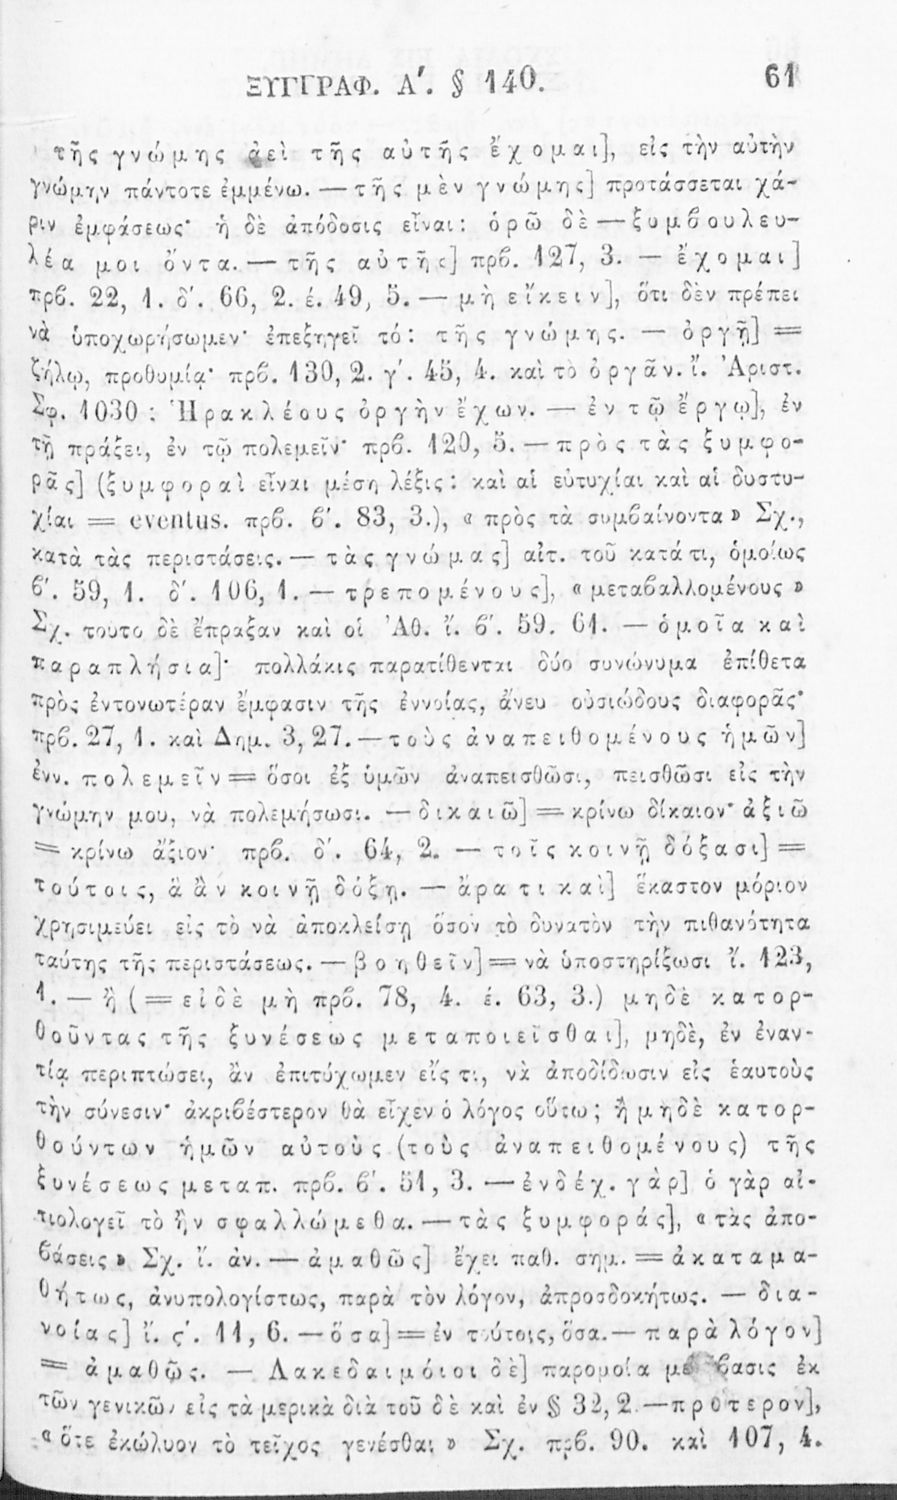 ΞΥΓΓΡΑΦ. Α΄. § 140. 61
τῆς γνώμης ἀεὶ τῆς αὐτῆς ἔχομαι], εἰς τὴν αὐτὴν
γνώμην πάντοτε ἐμμένω. — τῆς μὲν γνώμης] προτάσσεται χά-
ριν ἐμφάσεως· ἡ δὲ ἀπόδοσις εἶναι: ὁρῶ δὲ — ξυμβουλευ-
λέα μοι ὄντα. — τῆς αὐτῆς] πρβ. 127, 3. — ἔχομαι]
πρβ. 22, 1. δ΄. 66, 2. έ. 49, 5. — μὴ εἴκειν], ὅτι δὲν πρέπει
νὰ ὑποχωρήσωμεν· ἐπεξηγεῖ τό: τῆς γνώμης. — ὀργῇ] =
ζήλῳ, προθυμίᾳ· πρβ. 130, 2. γ΄. 45, 4. καὶ τὸ ὀργᾶν. ἴ. Ἀριστ.
Σφ. 1030: Ἡρακλέους ὀργὴν ἔχων. — ἐν τῷ ἔργῳ], ἐν
τῇ πράξει, ἐν τῷ πολεμεῖν· πρβ. 120, 5. — πρὸς τὰς ξυμφο-
ρᾶς] (ξυμφοραὶ εἶναι μέση λέξις: καὶ αἱ εὐτυχίαι καὶ αἱ δυστυ-
χίαι = eventus. πρβ. β΄. 83, 3.), « πρὸς τὰ συμβαίνοντα » Σχ.,
κατὰ τὰς περιστάσεις. — τὰς γνώμας] αἰτ. τοῦ κατά τι, ὁμοίως
β΄. 59, 1. δ΄. 106, 1. — τρεπομένους], « μεταβαλλομένους »
Σχ. τοῦτο δὲ ἔπραξαν καὶ οἱ Ἀθ. ἴ. β΄. 59. 61. — ὁμοῖα καὶ
παραπλήσια]· πολλάκις παρατίθενται δύο συνώνυμα ἐπίθετα
πρὸς ἐντονωτέραν ἔμφασιν τῆς ἐννοίας, ἄνευ οὐσιώδους διαφορᾶς·
πρβ. 27, 1. καὶ Δημ. 3, 27. — τοὺς ἀναπειθομένους ἡμῶν]
ἐνν. πολεμεῖν = ὅσοι ἐξ ὑμῶν ἀναπεισθῶσι, πεισθῶσι εἰς τὴν
γνώμην μου, νὰ πολεμήσωσι. — δικαιῶ] = κρίνω δίκαιον· ἀξιῶ
= κρίνω ἄξιον· πρβ. δ΄. 64, 2. — τοῖς κοινῇ δόξασι] =
τούτοις, ἃ ἂν κοινῇ δόξῃ. — ἄρα τι καὶ] ἕκαστον μόριον
χρησιμεύει εἰς τὸ νὰ ἀποκλείσῃ ὅσον τὸ δυνατὸν τὴν πιθανότητα
ταύτης τῆς περιστάσεως. — βοηθεῖν] = νὰ ὑποστηρίξωσι ἴ. 123,
1. — ἢ (= εἰ δὲ μὴ πρβ. 78, 4. έ. 63, 3.) μηδὲ κατορ-
θοῦντας τῆς ξυνέσεως μεταποιεῖσθαι], μηδὲ, ἐν ἐναν-
τίᾳ περιπτώσει, ἂν ἐπιτύχωμεν εἴς τι, νὰ ἀποδίδωσιν εἰς ἑαυτοὺς
τὴν σύνεσιν· ἀκριβέστερον θὰ εἶχεν ὁ λόγος οὕτω; ἢ μηδὲ κατορ-
θούντων ἡμῶν αὐτοὺς (τοὺς ἀναπειθομένους) τῆς
ξυνέσεως μεταπ. πρβ. β΄. 51, 3. — ἐνδέχ. γὰρ] ὁ γὰρ αἰ-
τιολογεῖ τὸ ἢν σφαλλώμεθα. — τὰς ξυμφοράς], « τὰς ἀπο-
βάσεις » Σχ. ἴ. ἀν. — ἀμαθῶς] ἔχει παθ. σημ. = ἀκαταμα-
θήτως, ἀνυπολογίστως, παρὰ τὸν λόγον, ἀπροσδοκήτως. — δια-
νοίας] ἴ. ς΄. 11, 6. — ὅσα] = ἐν τούτοις, ὅσα. — παρὰ λόγον]
= ἀμαθῶς. — Λακεδαιμόιοι δὲ] παρομοία μετάβασις ἐκ
τῶν γενικῶν εἰς τὰ μερικὰ διὰ τοῦ δὲ καὶ ἐν § 32, 2 — πρότερον],
« ὅτε ἐκώλυον τὸ τεῖχος γενέσθαι » Σχ. πρβ. 90. καὶ 107, 4.